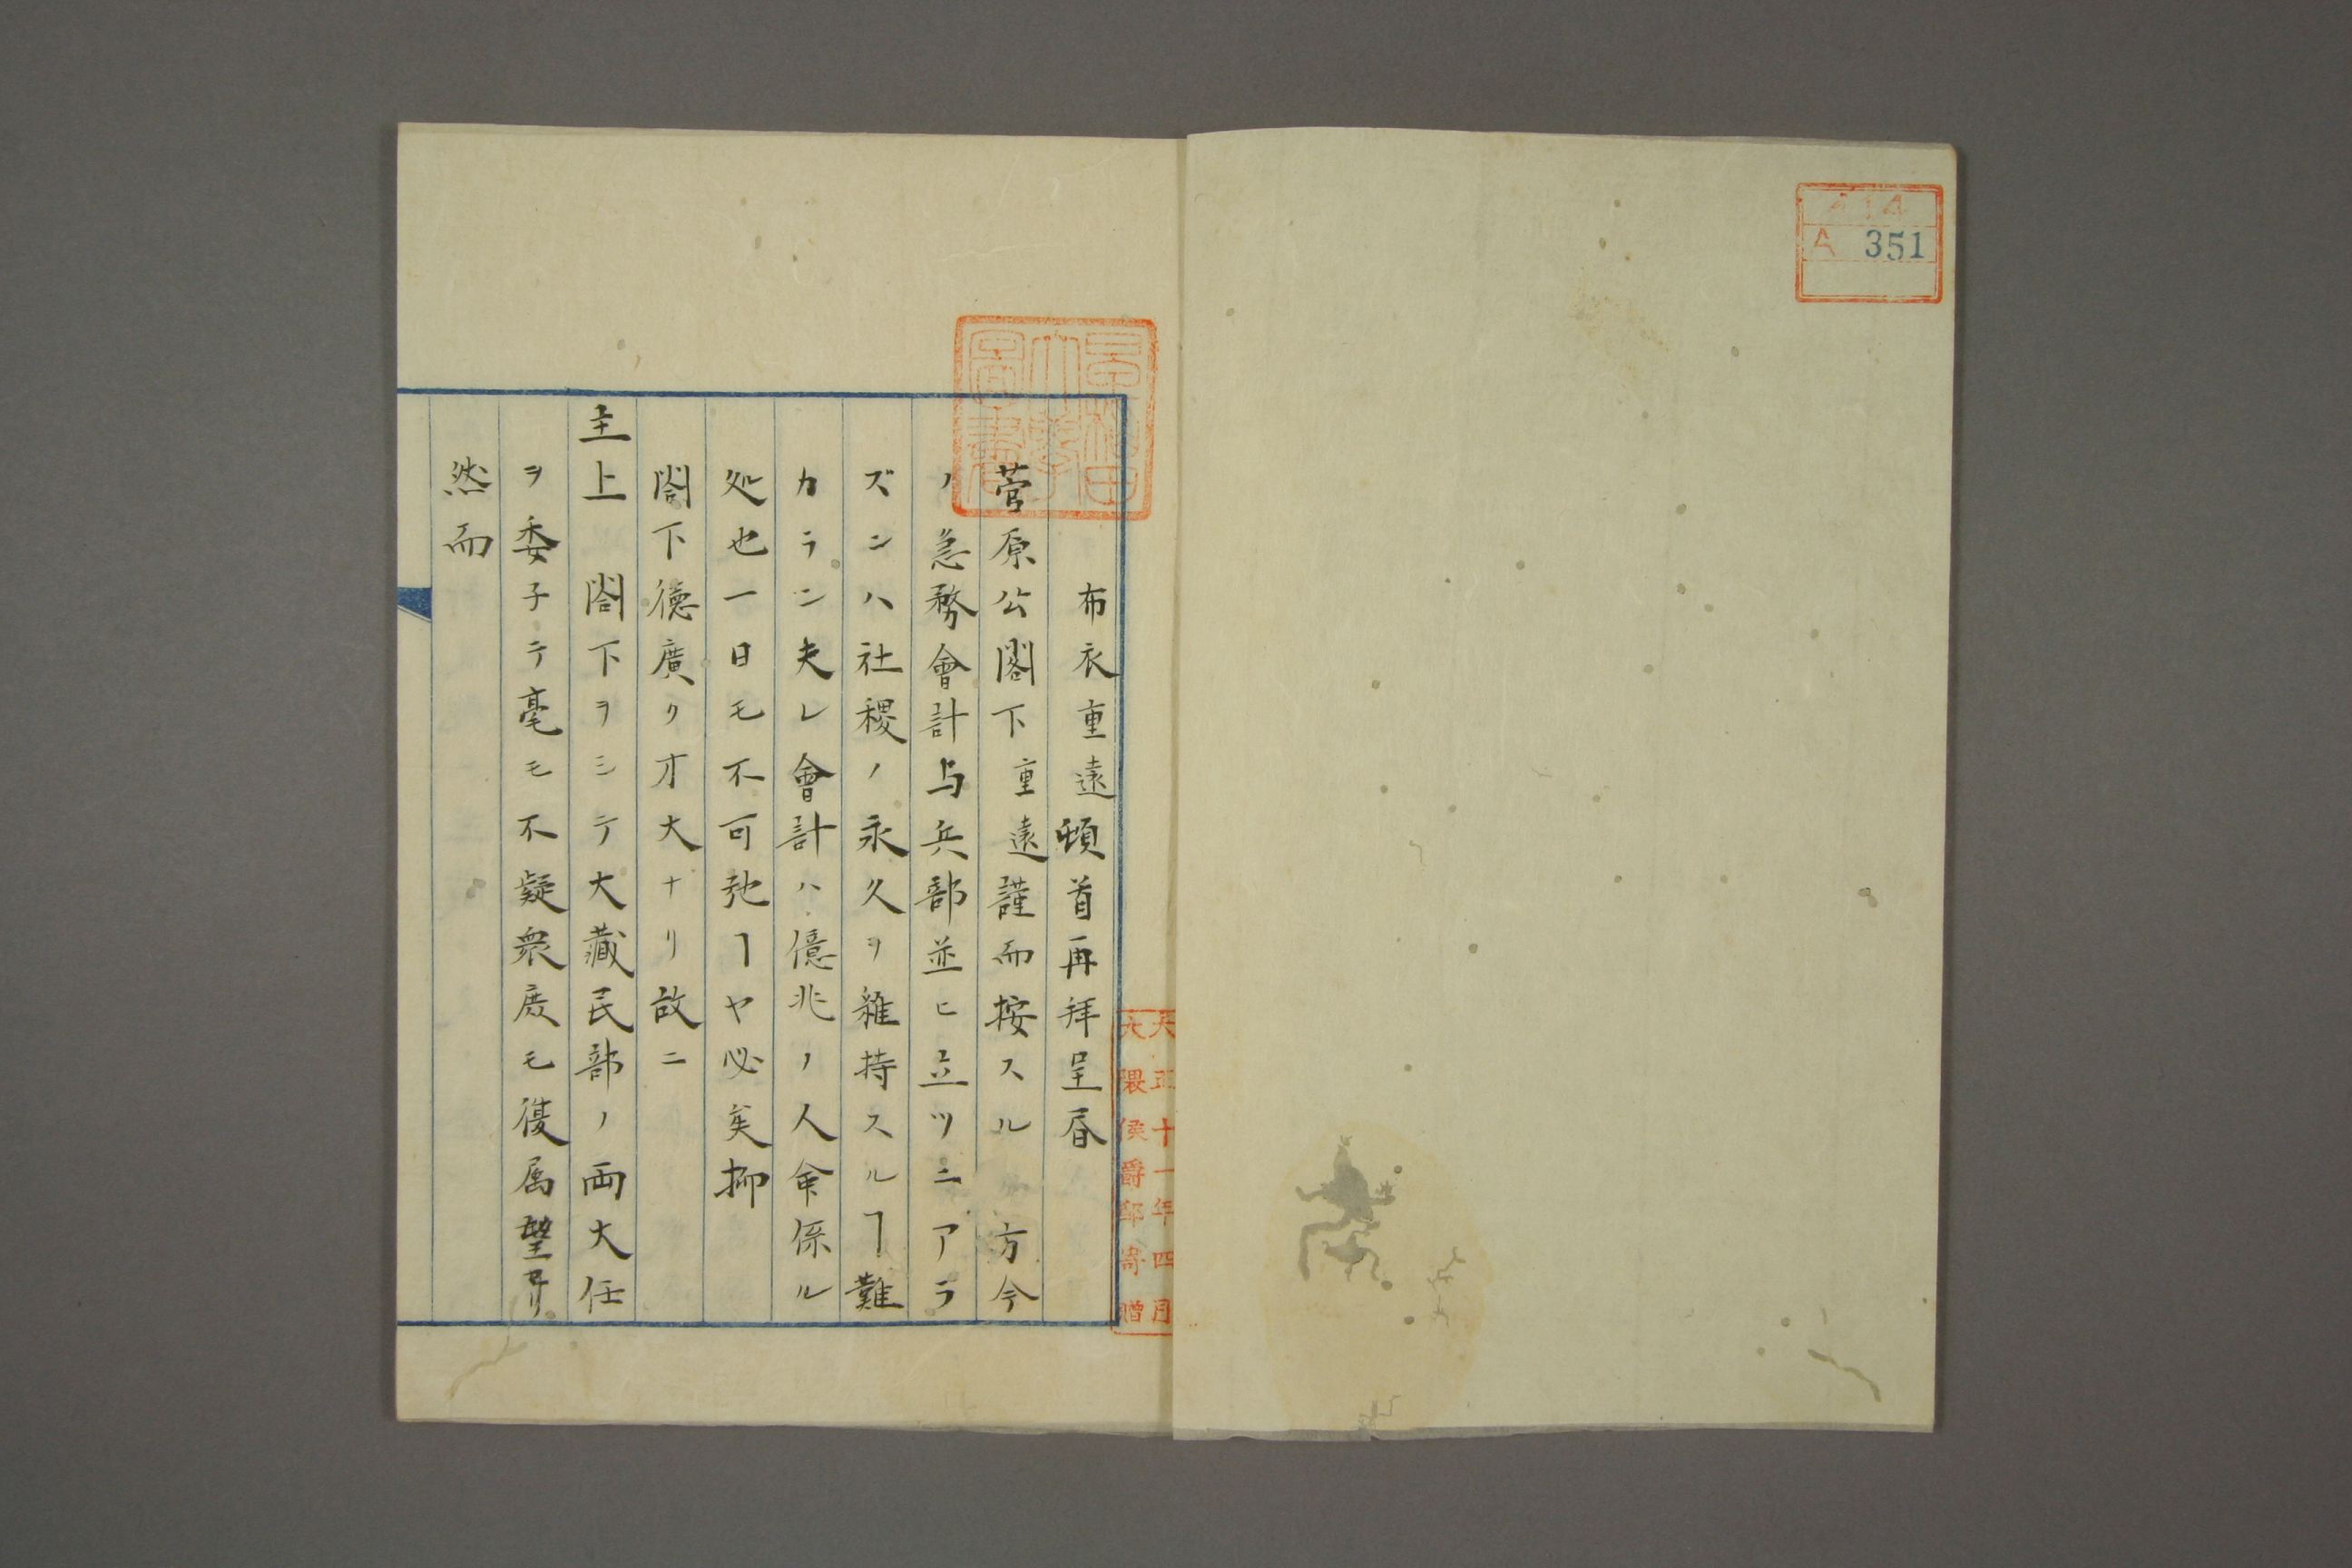 A 351
布衣重遠頓首再拜呈昏
菅原公閣下重遠謹而按スル 方今
ノ急務會計与兵部並ヒ立ツニアラ
ズンハ社稷ノ永久ヲ維持スルヿ難
カラン夫レ會計ハ億兆ノ人命係ル
処也一日モ不可弛ヿヤ必矣抑
閤下德廣ク才大ナリ故ニ
主上 閤下ヲシテ大藏民部ノ両大任
ヲ委子テ毫モ不疑衆庶モ復属望セリ
然而
大正十一年四月
大隈侯爵邸寄贈
早稲田大學圖書